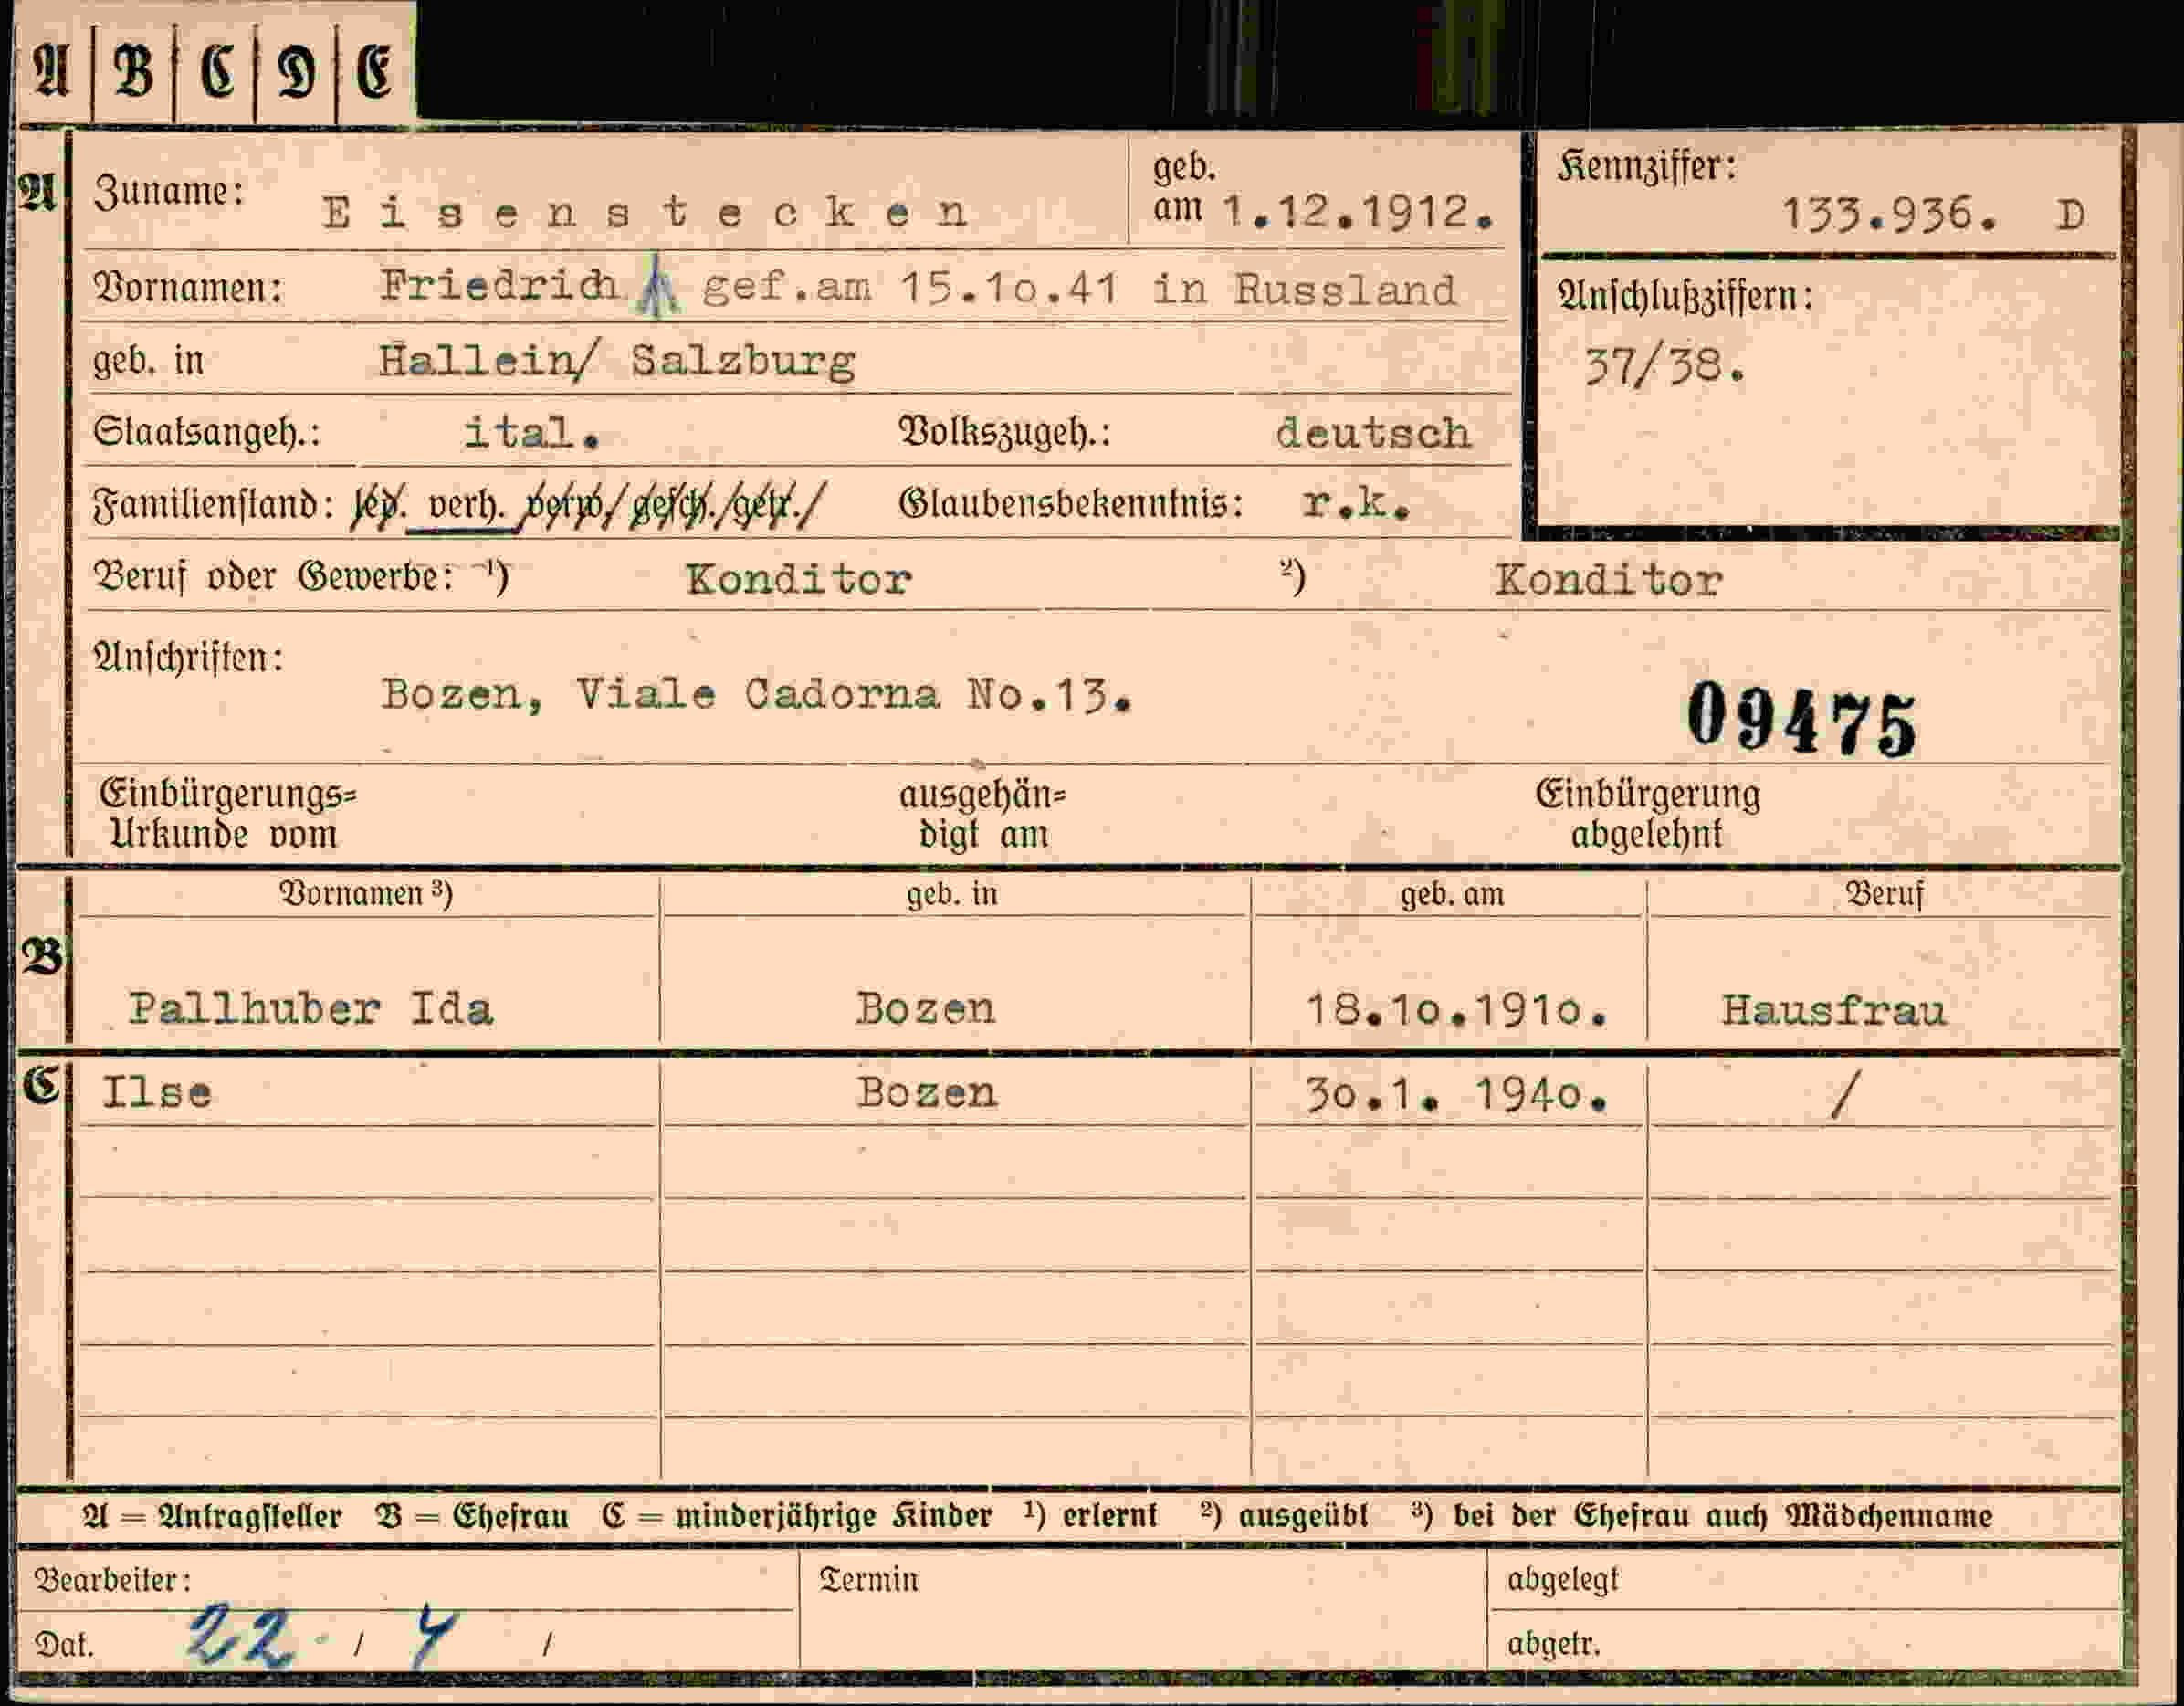 A B C D E
A Zuname: Eisenstecken geb. am 1.12.1912. Kennziffer: 133.936. D
Vornamen: Friedrich gef.am 15.1o.41 in Russland Anschlußziffern:
geb. in Hallein/ Salzburg 37/38.
Staatsangeh.: ital. Volkszugeh.: deutsch
Familienstand: led. verh. verw./gesch./getr./ Glaubensbekenntnis: r.k.
Beruf oder Gewerbe: ¹) Konditor ²) Konditor
Anschriften:
Bozen, Viale Cadorna No.13. 09475
Einbürgerungs= ausgehän= Einbürgerung
Urkunde vom digt am abgelehnt
Vornamen ³) geb. in geb. am Beruf
B
Pallhuber Ida Bozen 18.1o.191o. Hausfrau
C Ilse Bozen 3o.1. 194o. /
A = Antragsteller B = Ehefrau C = minderjährige Kinder ¹) erlernt ²) ausgeübt ³) bei der Ehefrau auch Mädchenname
Bearbeiter: Termin abgelegt
Dat. 22 / 4 / abgetr.